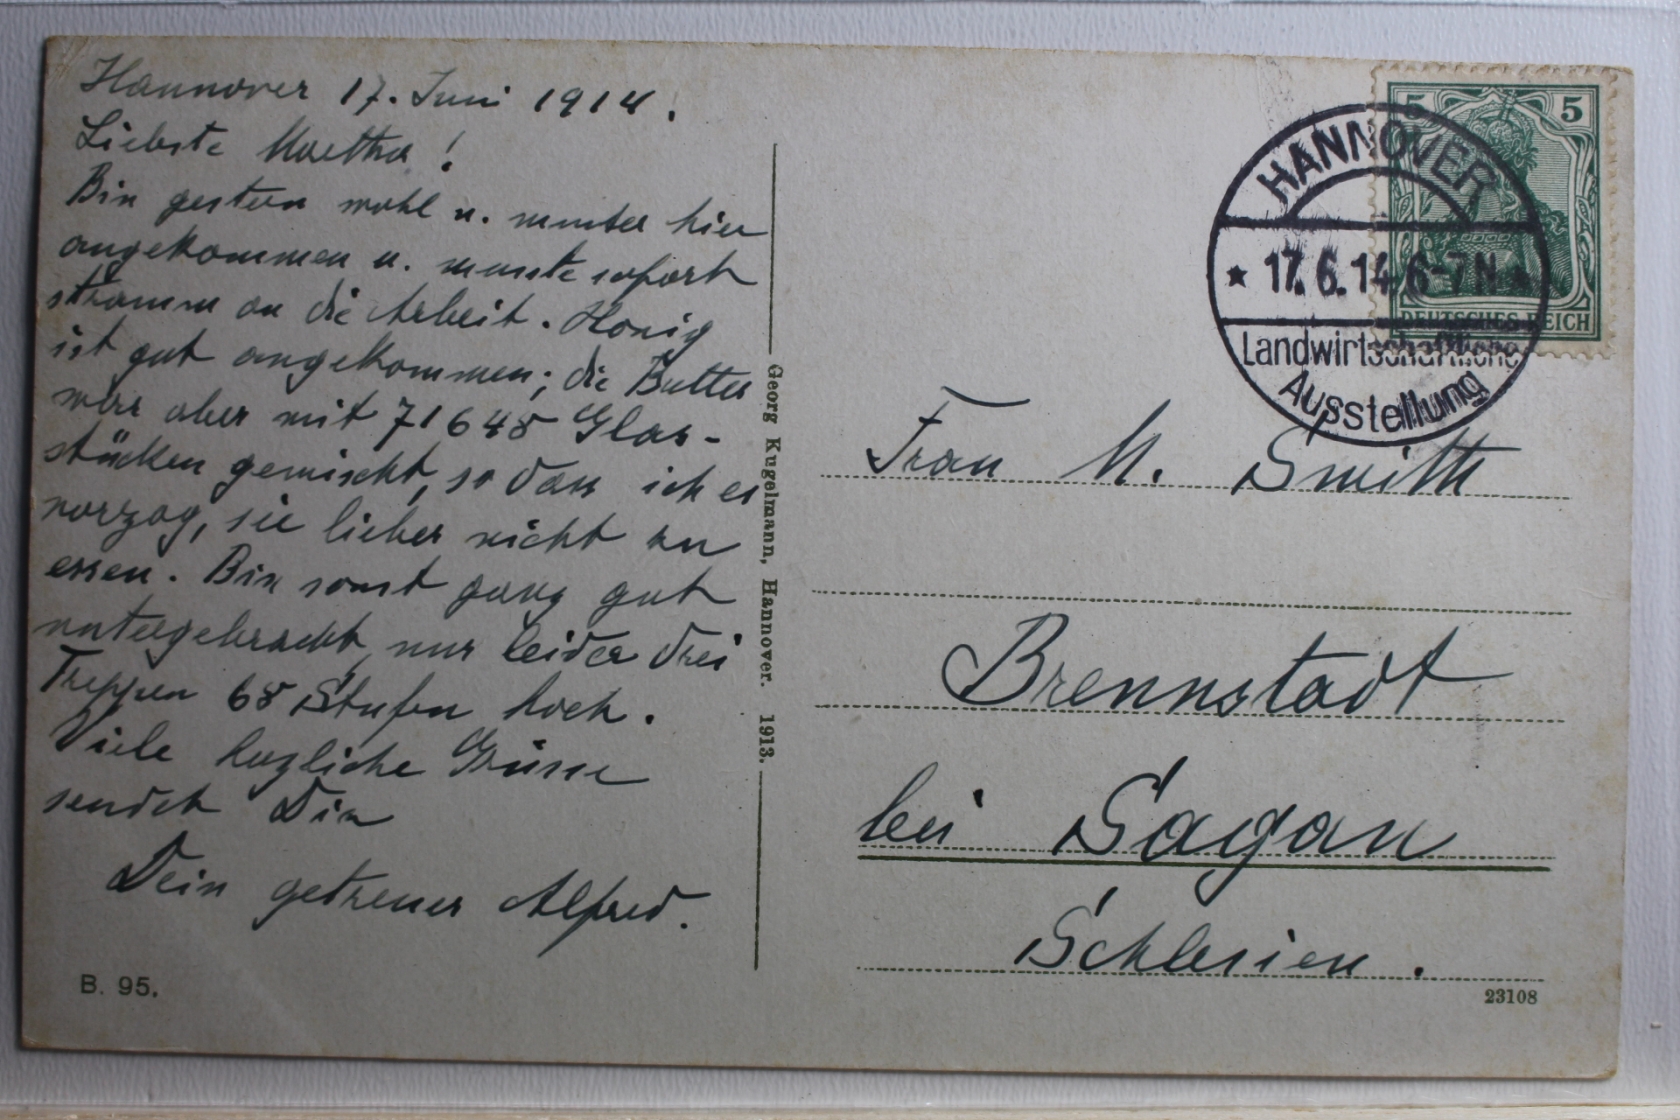 Hannover 17. Juni 1914.
Liebste Martha!
Bin gestern wohl u. munter hier
angekommen u. musste sofort
stramm an die Arbeit. Honig
ist gut angekommen; die Butter
war aber mit 71648 Glas-
stücken gemischt, so dass ich es
vorzog, sie lieber nicht zu
essen. Bin sonst ganz gut
untergebracht, nur leider drei
Treppen 68 Stufen hoch.
Viele herzliche Grüsse
sendet Dir
Dein getreuer Alfred.
B. 95.
Georg Kugelmann, Hannover. 1913.
5 5
DEUTSCHES REICH
HANNOVER
* 17.6.14.6-7N *
Landwirtschaftliche
Ausstellung
Frau M. Smith
Brennstadt
bei Sagan
Schlesien.
23108